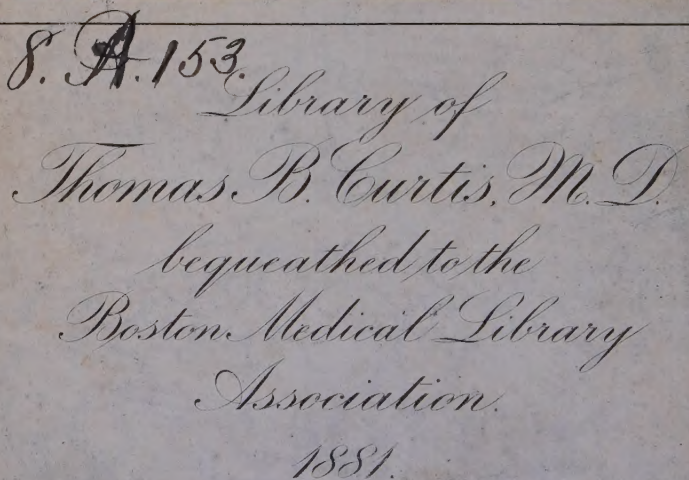 8. A. 153.
Library of
Thomas B. Curtis, M. D.
bequeathed to the
Boston Medical Library
Association.
1881.